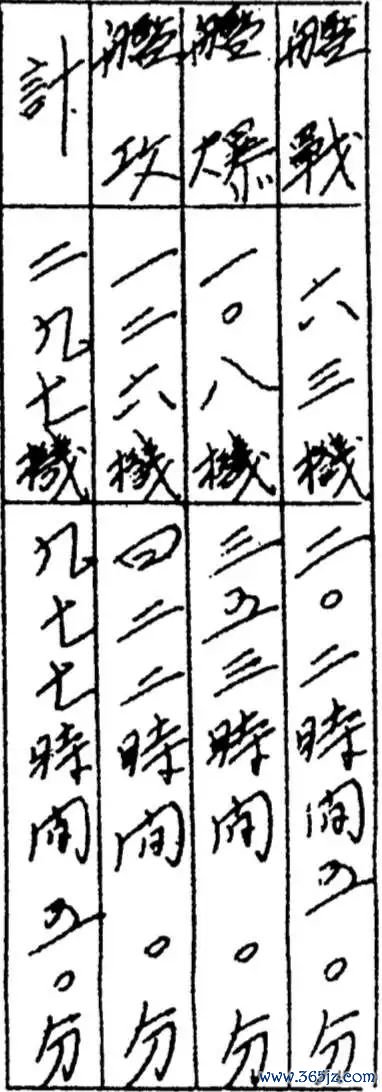 艦戰 六三機 二〇二時間五〇分
艦爆 一〇八機 三五三時間 〇分
艦攻 一二六機 四二二時間 〇分
計 二九七機 九七七時間五〇分
www.365jz.com